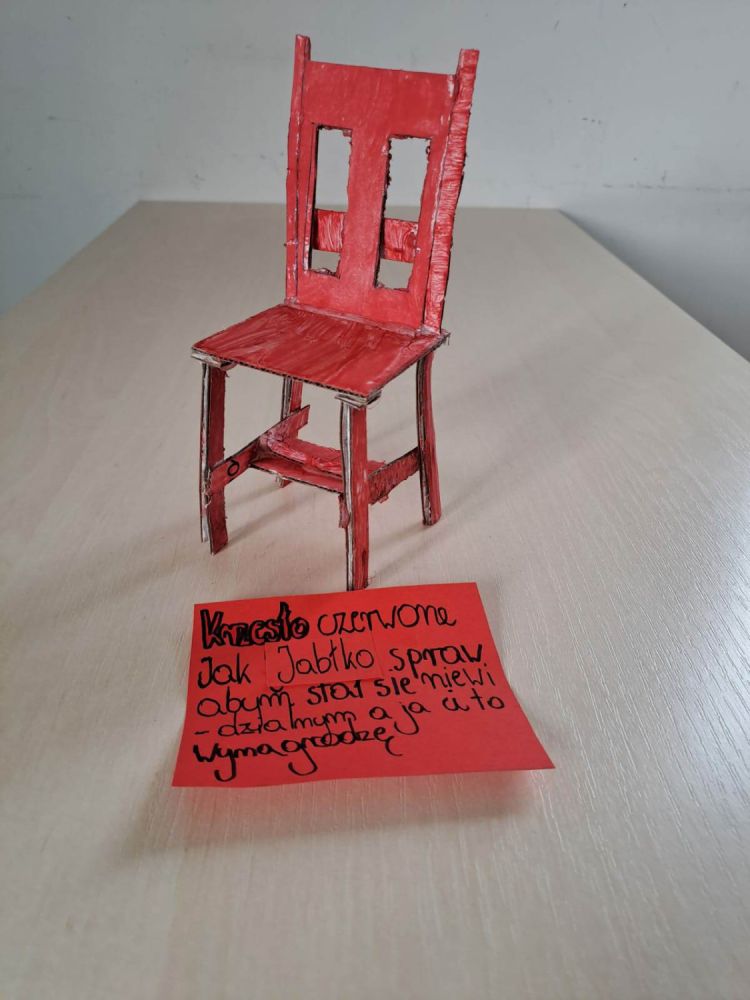 Krzesło czerwone
Jak Jabłko spraw
abym stał się niewi
- dzialnym a ja ci to
Wymagrodzę